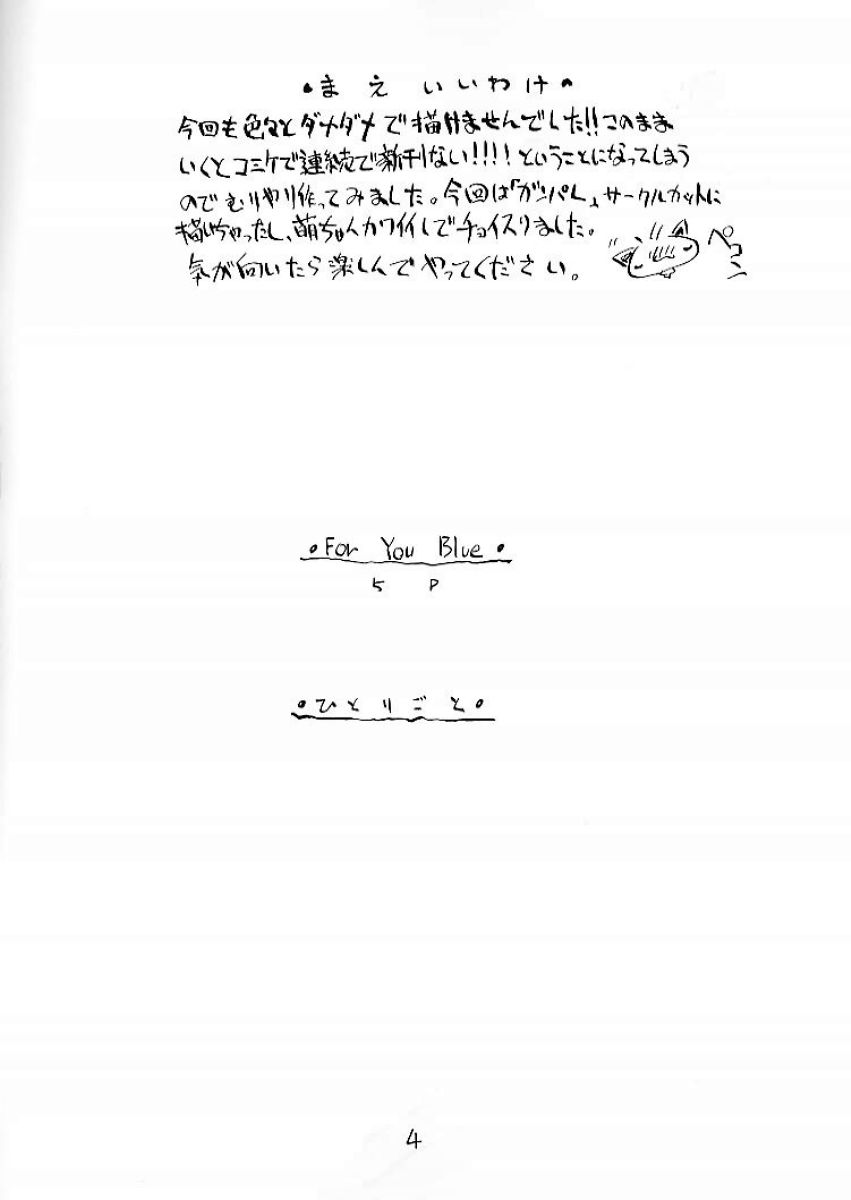 ・まえいいわけ・
今回も色々とダメダメで描けませんでした!!このまま
いくとコミケで連続で新刊ない!!!!ということになってしまう
のでむりやり作ってみました。今回は「ガンパレ」サークルカットに
描いちゃったし、萌ちゃんカワイイしでチョイスりました。
気が向いたら楽しんでやってください。
ペコン
・For You Blue・
5 P
・ひとりごと・
4